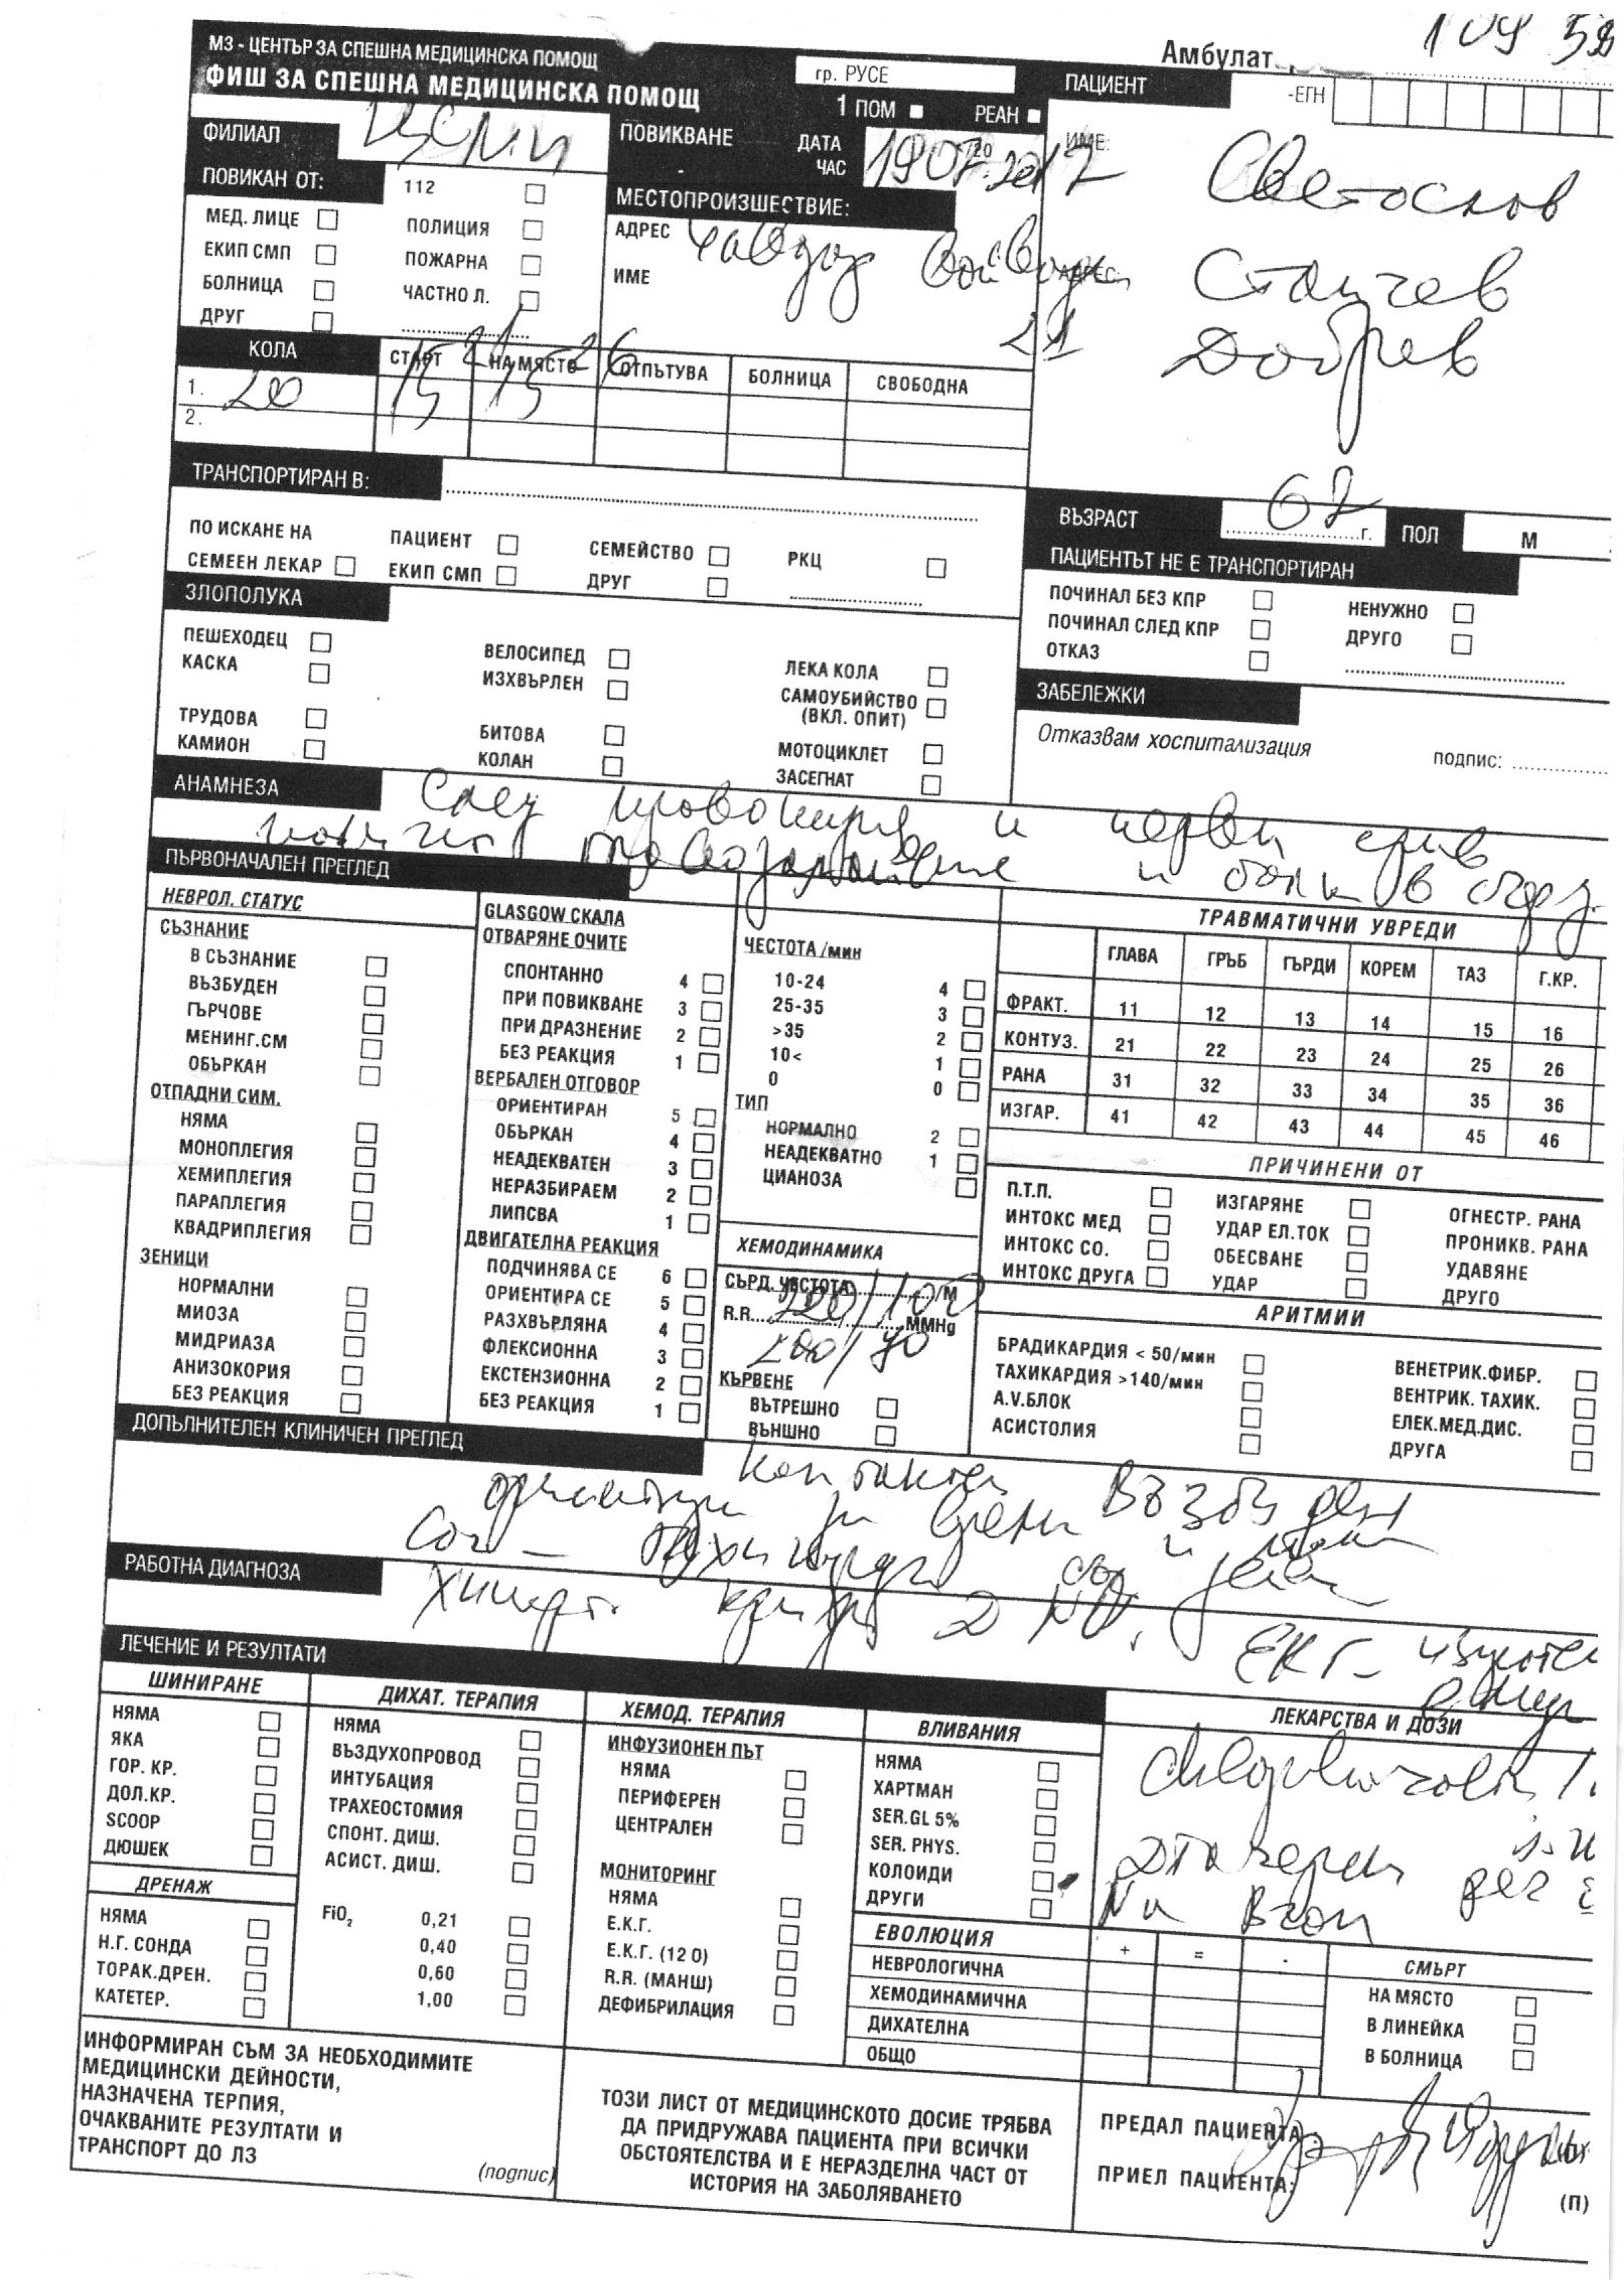 Амбулат.
МЗ - ЦЕНТЪР ЗА СПЕШНА МЕДИЦИНСКА ПОМОЩ
ФИШ ЗА СПЕШНА МЕДИЦИНСКА ПОМОЩ
гр. РУСЕ
1 ПОМ РЕАН
ПАЦИЕНТ -ЕГН
ФИЛИАЛ ЦСМП
ПОВИКВАНЕ ДАТА ЧАС
19 07. 2017
ИМЕ: Светослав
Станчев
Добрев
АДРЕС:
ПОВИКАН ОТ: 112
МЕД. ЛИЦЕ ПОЛИЦИЯ
ЕКИП СМП ПОЖАРНА
БОЛНИЦА ЧАСТНО Л.
ДРУГ
МЕСТОПРОИЗШЕСТВИЕ:
АДРЕС Чавдар Войвода
ИМЕ
21
КОЛА СТАРТ НА МЯСТО ОТПЪТУВА БОЛНИЦА СВОБОДНА
1. 200 15 21 15 26
2.
ТРАНСПОРТИРАН В:
ПО ИСКАНЕ НА ПАЦИЕНТ СЕМЕЙСТВО РКЦ
СЕМЕЕН ЛЕКАР ЕКИП СМП ДРУГ
ВЪЗРАСТ 67 г. ПОЛ М
ПАЦИЕНТЪТ НЕ Е ТРАНСПОРТИРАН
ПОЧИНАЛ БЕЗ КПР НЕНУЖНО
ПОЧИНАЛ СЛЕД КПР ДРУГО
ОТКАЗ
ЗЛОПОЛУКА
ПЕШЕХОДЕЦ ВЕЛОСИПЕД ЛЕКА КОЛА
КАСКА ИЗХВЪРЛЕН САМОУБИЙСТВО
(ВКЛ. ОПИТ)
ТРУДОВА БИТОВА МОТОЦИКЛЕТ
КАМИОН КОЛАН ЗАСЕГНАТ
ЗАБЕЛЕЖКИ
Отказвам хоспитализация
подпис:
АНАМНЕЗА След и нервен срив
и болки в
ПЪРВОНАЧАЛЕН ПРЕГЛЕД
НЕВРОЛ. СТАТУС
СЪЗНАНИЕ
В СЪЗНАНИЕ
ВЪЗБУДЕН
ГЪРЧОВЕ
МЕНИНГ.СМ
ОБЪРКАН
ОТПАДНИ СИМ.
НЯМА
МОНОПЛЕГИЯ
ХЕМИПЛЕГИЯ
ПАРАПЛЕГИЯ
КВАДРИПЛЕГИЯ
ЗЕНИЦИ
НОРМАЛНИ
МИОЗА
МИДРИАЗА
АНИЗОКОРИЯ
БЕЗ РЕАКЦИЯ
GLASGOW СКАЛА
ОТВАРЯНЕ ОЧИТЕ
СПОНТАННО 4
ПРИ ПОВИКВАНЕ 3
ПРИ ДРАЗНЕНИЕ 2
БЕЗ РЕАКЦИЯ 1
ВЕРБАЛЕН ОТГОВОР
ОРИЕНТИРАН 5
ОБЪРКАН 4
НЕАДЕКВАТЕН 3
НЕРАЗБИРАЕМ 2
ЛИПСВА 1
ДВИГАТЕЛНА РЕАКЦИЯ
ПОДЧИНЯВА СЕ 6
ОРИЕНТИРА СЕ 5
РАЗХВЪРЛЯНА 4
ФЛЕКСИОННА 3
ЕКСТЕНЗИОННА 2
БЕЗ РЕАКЦИЯ 1
ЧЕСТОТА /мин
10-24 4
25-35 3
>35 2
10< 1
0 0
ТИП
НОРМАЛНО 2
НЕАДЕКВАТНО 1
ЦИАНОЗА
ХЕМОДИНАМИКА
СЪРД. ЧЕСТОТА /М
220/100
R.R. / ММHg
200/90
КЪРВЕНЕ
ВЪТРЕШНО
ВЪНШНО
ТРАВМАТИЧНИ УВРЕДИ
ГЛАВА ГРЪБ ГЪРДИ КОРЕМ ТАЗ Г.КР.
ФРАКТ. 11 12 13 14 15 16
КОНТУЗ. 21 22 23 24 25 26
РАНА 31 32 33 34 35 36
ИЗГАР. 41 42 43 44 45 46
ПРИЧИНЕНИ ОТ
П.Т.П. ИЗГАРЯНЕ ОГНЕСТР. РАНА
ИНТОКС МЕД УДАР ЕЛ.ТОК ПРОНИКВ. РАНА
ИНТОКС СО. ОБЕСВАНЕ УДАВЯНЕ
ИНТОКС ДРУГА УДАР ДРУГО
АРИТМИИ
БРАДИКАРДИЯ < 50/мин ВЕНЕТРИК.ФИБР.
ТАХИКАРДИЯ >140/мин ВЕНТРИК. ТАХИК.
А.V.БЛОК ЕЛЕК.МЕД.ДИС.
АСИСТОЛИЯ ДРУГА
ДОПЪЛНИТЕЛЕН КЛИНИЧЕН ПРЕГЛЕД
контактен Възбуден
РАБОТНА ДИАГНОЗА
ЕКГ-
ЛЕЧЕНИЕ И РЕЗУЛТАТИ
ШИНИРАНЕ
НЯМА
ЯКА
ГОР. КР.
ДОЛ.КР.
SCOOP
ДЮШЕК
ДРЕНАЖ
НЯМА
Н.Г. СОНДА
ТОРАК.ДРЕН.
КАТЕТЕР.
ДИХАТ. ТЕРАПИЯ
НЯМА
ВЪЗДУХОПРОВОД
ИНТУБАЦИЯ
ТРАХЕОСТОМИЯ
СПОНТ. ДИШ.
АСИСТ. ДИШ.
FiO2 0,21
0,40
0,60
1,00
ХЕМОД. ТЕРАПИЯ
ИНФУЗИОНЕН ПЪТ
НЯМА
ПЕРИФЕРЕН
ЦЕНТРАЛЕН
МОНИТОРИНГ
НЯМА
Е.К.Г.
Е.К.Г. (12 О)
R.R. (МАНШ)
ДЕФИБРИЛАЦИЯ
ВЛИВАНИЯ
НЯМА
ХАРТМАН
SER.GL 5%
SER. PHYS.
КОЛОИДИ
ДРУГИ
ЛЕКАРСТВА И ДОЗИ
ЕВОЛЮЦИЯ + = -
НЕВРОЛОГИЧНА
ХЕМОДИНАМИЧНА
ДИХАТЕЛНА
ОБЩО
СМЪРТ
НА МЯСТО
В ЛИНЕЙКА
В БОЛНИЦА
ИНФОРМИРАН СЪМ ЗА НЕОБХОДИМИТЕ
МЕДИЦИНСКИ ДЕЙНОСТИ,
НАЗНАЧЕНА ТЕРПИЯ,
ОЧАКВАНИТЕ РЕЗУЛТАТИ И
ТРАНСПОРТ ДО ЛЗ
(подпис)
ТОЗИ ЛИСТ ОТ МЕДИЦИНСКОТО ДОСИЕ ТРЯБВА
ДА ПРИДРУЖАВА ПАЦИЕНТА ПРИ ВСИЧКИ
ОБСТОЯТЕЛСТВА И Е НЕРАЗДЕЛНА ЧАСТ ОТ
ИСТОРИЯ НА ЗАБОЛЯВАНЕТО
ПРЕДАЛ ПАЦИЕНТА:
ПРИЕЛ ПАЦИЕНТА:
(П)